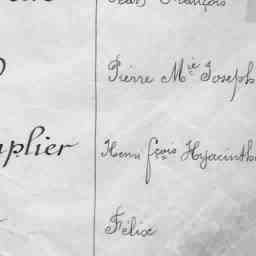 Jean François
Pierre Mie Joseph
plier Henri fçois Hyacinth
Félix